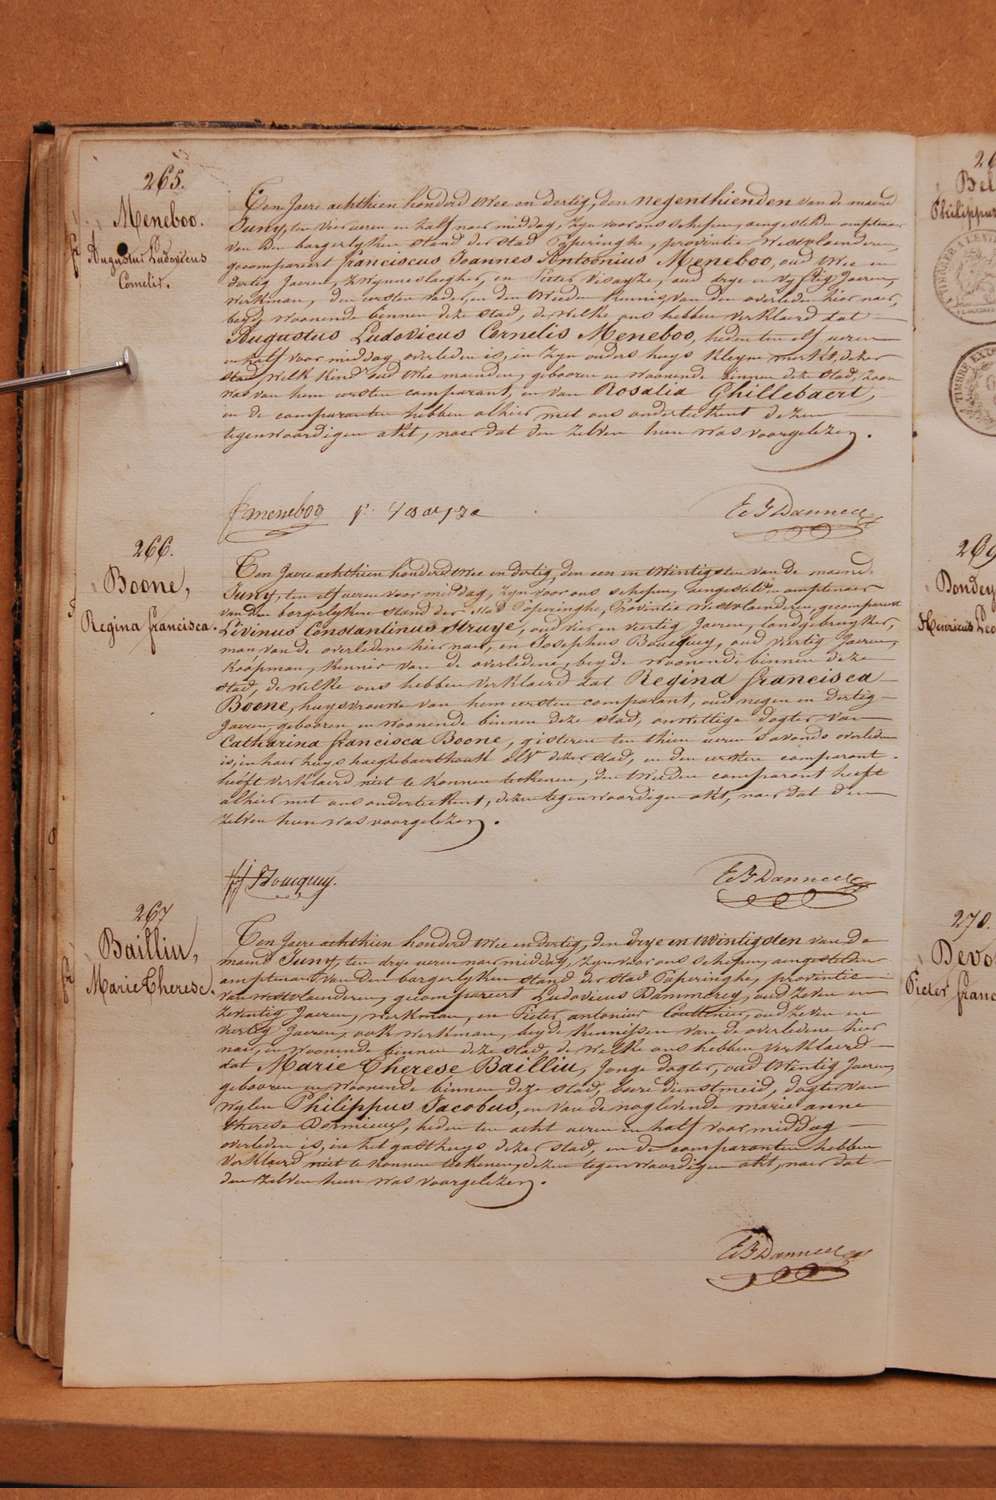 265.
Meneboo.
Augustus Ludovicus
Cornelis.
Ten Jaere achthien honderd twee en dertig, den negenthienden van de maend
Juny, ten vier ueren en half naer middag, zyn voor ons schepen, aengestelden amptenaer
van den borgerlyken stand der stad Poperinghe, provintie westvlaenderen,
gecompareert franciscus Joannes Antoonius Meneboo, oud twee en
dertig Jaeren, zwynneslagher, en Pieter Visayze, oud drye en vyftig Jaeren,
werkman, den eersten vader, en den tweeden kennis van den overleden hier naer,
beyd woonende binnen deze stad, de welke ons hebben verklaerd dat
Augustus Ludovicus Cornelis Meneboo, heden ten elf ueren
en half voor middag overleden is, in zyn ouders huys kleyne merkt, dezer
stad, welk kind oud twee maenden, gebooren en woonende binnen deze stad, zoon
was van hem eersten comparant, en van Rosalia Ghillebaert,
en de comparanten hebben alhier met ons onderteekent dezen
tegenwoordigen akt, naer dat den zelven hun was voorgelezen.
f meneboo p. Visayze
266.
Boone,
Regina francisca.
Ten Jaere achthien honderd twee en dertig, den een en twintigsten van de maend
Juny, ten elf ueren voor middag, zyn voor ons schepen, aengestelden amptenaer
van den borgerlyken stand der stad Poperinghe, Provintie westvlaenderen, gecompareert
Livinus Constantinus Struye, oud vier en veertig Jaeren, landgebruyker,
man van de overledene hier naer, en Josephus Boucquy, oud veertig Jaeren,
koopman, kennis van de overledene, beyde woonende binnen deze
stad, de welke ons hebben verklaerd dat Regina francisca
Boone, huysvrouwe van hem eersten comparant, oud negen en dertig
Jaeren, gebooren en woonende binnen deze stad, onwettige dogter van
Catharina francisca Boone, gisteren ten thien ueren s'avonds overleden
is, in haer huys haeghebaerthoek dezer stad, en den eersten comparant
heeft verklaerd niet te konnen teekenen, den tweeden comparant heeft
alhier met ons onderteekent, dezen tegenwoordigen akt, naer dat den
zelven hun was voorgelezen.
Boucquy.
267
Bailliu,
Marie Therese.
Ten Jaere achthien honderd twee en dertig, den drye en twintigsten van de
maend Juny, ten drye ueren naer middag, zyn voor ons schepen, aengestelden
amptenaer van den borgerlyken stand der stad Poperinghe, provintie
van westvlaenderen, gecompareert Ludovicus Dammerey, oud zeven en
zeventig Jaeren, werkman, en Pieter antonier, oud zeven en
veertig Jaeren, ook werkman, beyde kennissen van de overledene hier
naer, en woonende binnen deze stad, de welke ons hebben verklaerd
dat Marie Therese Bailliu, Jonge dogter, oud twintig Jaeren,
gebooren en woonende binnen deze stad, boere dienstmeid, dogter van
wylen Philippus Jacobus, en van de noglevende marie anne
therese Dermieux, heden ten acht ueren en half voor middag
overleden is, in het gasthuys dezer stad, en de comparanten hebben
verklaerd niet te konnen teekenen, dezen tegenwoordigen akt, naer dat
den zelven hun was voorgelezen.
269
Dondey
Henricus Leo
270.
Devo
Pieter franc